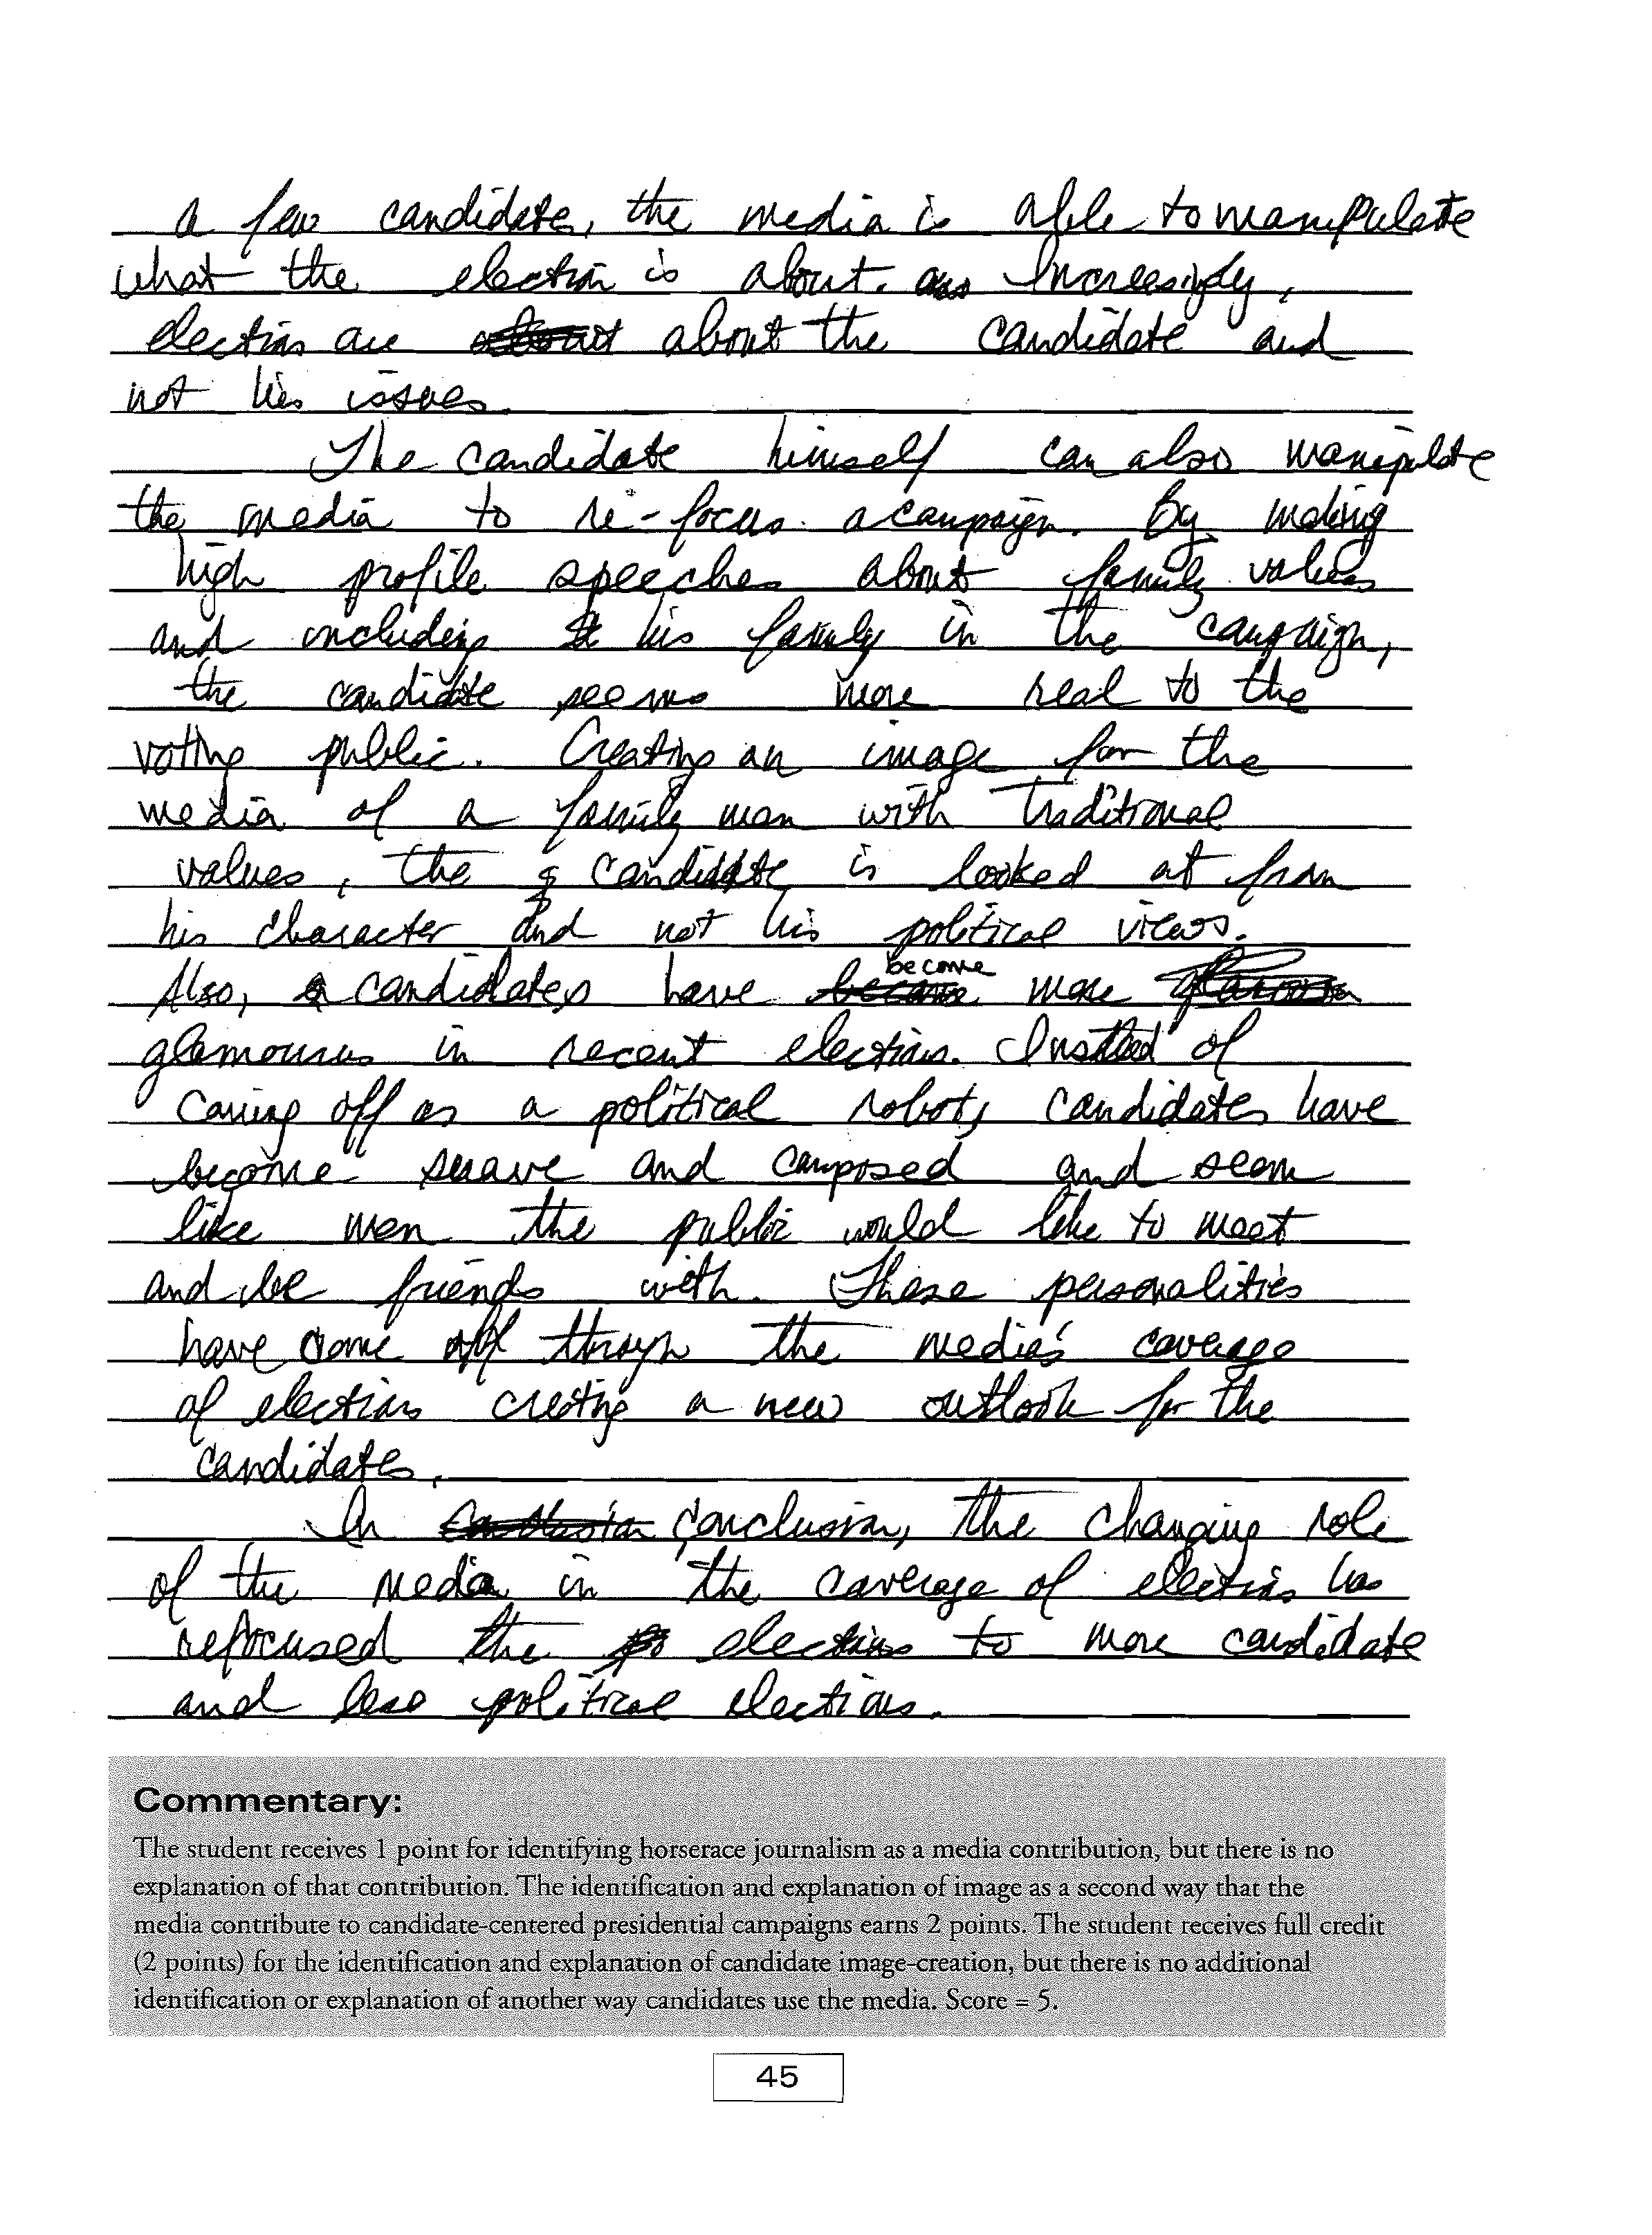 a few candidates, the media is able to manipulate
what the election is about. Increasingly,
elections are about the candidate and
not his issues.
The candidate himself can also manipulate
the media to re-focus a campaign. By making
high profile speeches about family values
and including his family in the campaign,
the candidate seems more real to the
voting public. Creating an image for the
media of a family man with traditional
values, the candidate is looked at from
his character and not his political views.
Also, candidates have become more
glamourous in recent elections. Instead of
coming off as a political robot, candidates have
become suave and composed and seem
like men the public would like to meet
and be friends with. These personalities
have come off through the media's coverage
of elections creating a new outlook for the
candidates.
In conclusion, the changing role
of the media in the coverage of elections has
refocused the elections to more candidate
and less political elections.
Commentary:
The student receives 1 point for identifying horserace journalism as a media contribution, but there is no
explanation of that contribution. The identification and explanation of image as a second way that the
media contribute to candidate-centered presidential campaigns earns 2 points. The student receives full credit
(2 points) for the identification and explanation of candidate image-creation, but there is no additional
identification or explanation of another way candidates use the media. Score = 5.
45